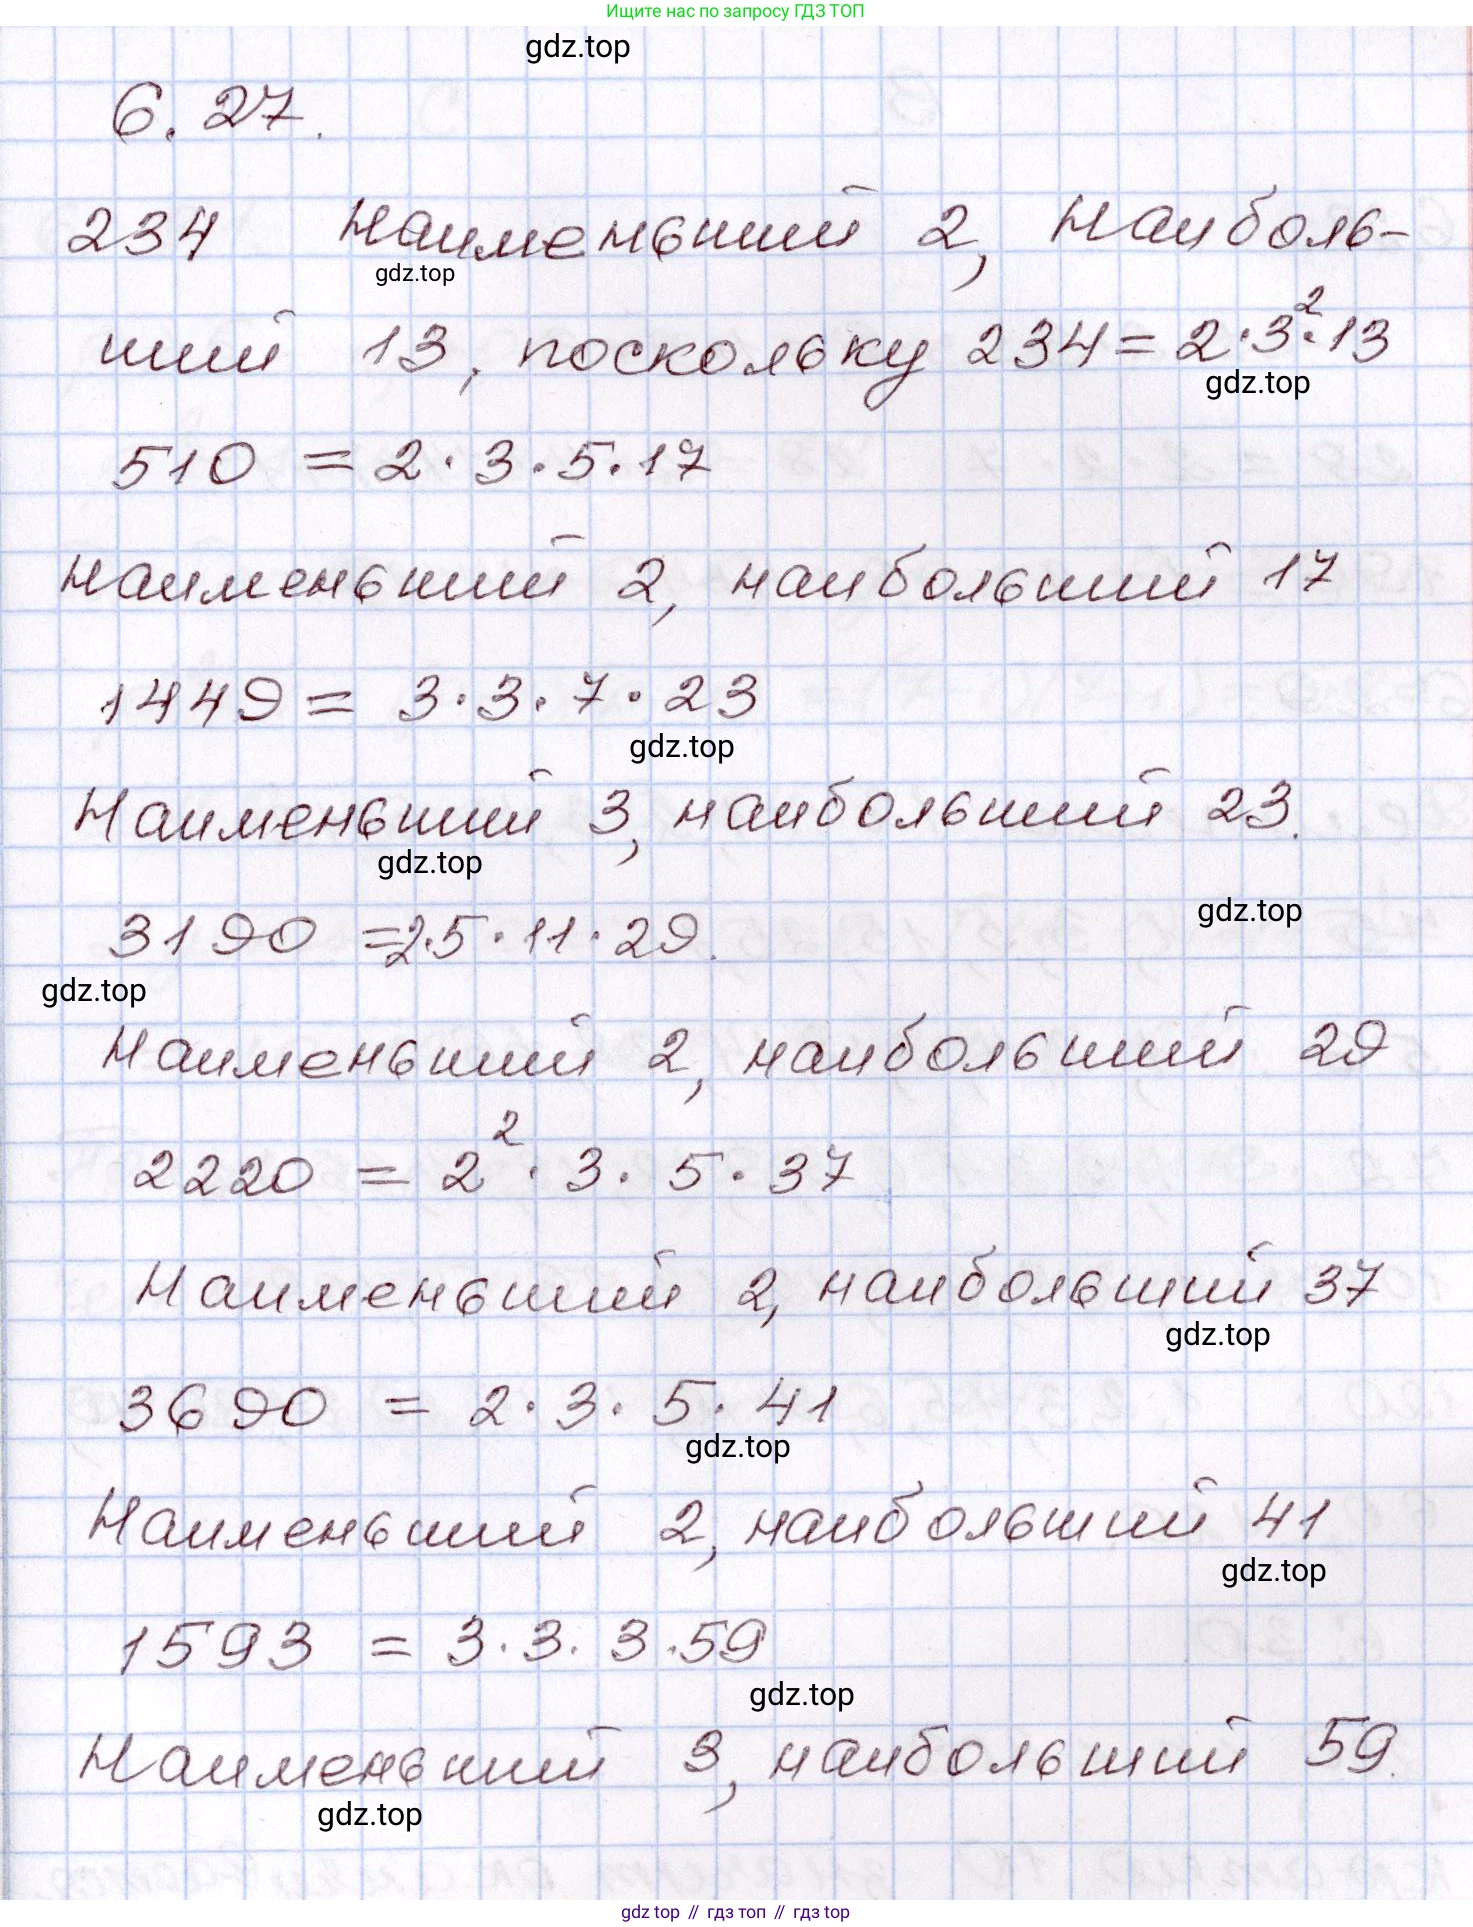 Ищите нас по запросу ГДЗ ТОП
gdz.top
6.27.
234 Наименьший 2, Наиболь-
gdz.top
ший 13, поскольку 234 = 2·3²·13
gdz.top
510 = 2·3·5·17
Наименьший 2, наибольший 17
1449 = 3·3·7·23
gdz.top
Наименьший 3, наибольший 23.
gdz.top
gdz.top
3190 =2·5·11·29.
gdz.top
Наименьший 2, наибольший 29
2220 = 2²·3·5·37
Наименьший 2, наибольший 37
gdz.top
3690 = 2·3·5·41
gdz.top
Наименьший 2, наибольший 41
gdz.top
1593 = 3·3·3·59
gdz.top
Наименьший 3, наибольший 59.
gdz.top
gdz top // гдз топ // гдз top